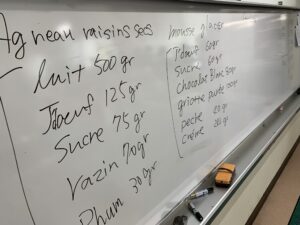 Agneau raisins secs
luit 500 gr
Jboeuf 125 gr
Sucre 75 gr
razin 70 gr
Rhum 30 gr
mousse glacer
60 gr
Sucre 60 gr
chocolat Blanc
griotte purée
peche 20 gr
crème